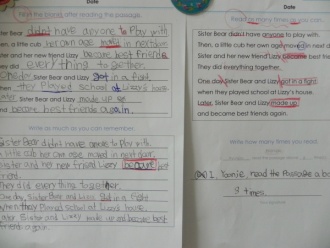 Date
after reading the passage.
Sister Bear didnt have anyone to Play with
Then, a little cub her own age moved in nextdoor
Sister Bear and her new friend Lizzy became best friends
They did everything to gether.
One day Sister Bear and Lizzy got in a fight
when they Played school at Lizzy's house
Later Sister Bear and Lizzy made up
and became best friends again.
Write as much as you can remember.
Sister Bear didnt have anyone to Play with.
a little cub her own age moved in next door.
Sister and her new friend Lizzy became best
friend.
They did everything together.
One day, Sister Bear and Lizzy Got in a fight
when they Played school at Lizzy's house
Later Sister Bear and Lizzy made up and became best friends
again.
Date
Read as many times as you can.
Sister Bear didn't have anyone to play with.
Then, a little cub her own age moved in next
Sister Bear and her new friend Lizzy became best
They did everything together.
One day Sister Bear and Lizzy got in a fight
when they played school at Lizzy's house.
Later, Sister Bear and Lizzy made up
and became best friends again.
Write how many times you read.
I, read the Passage a
9 times.